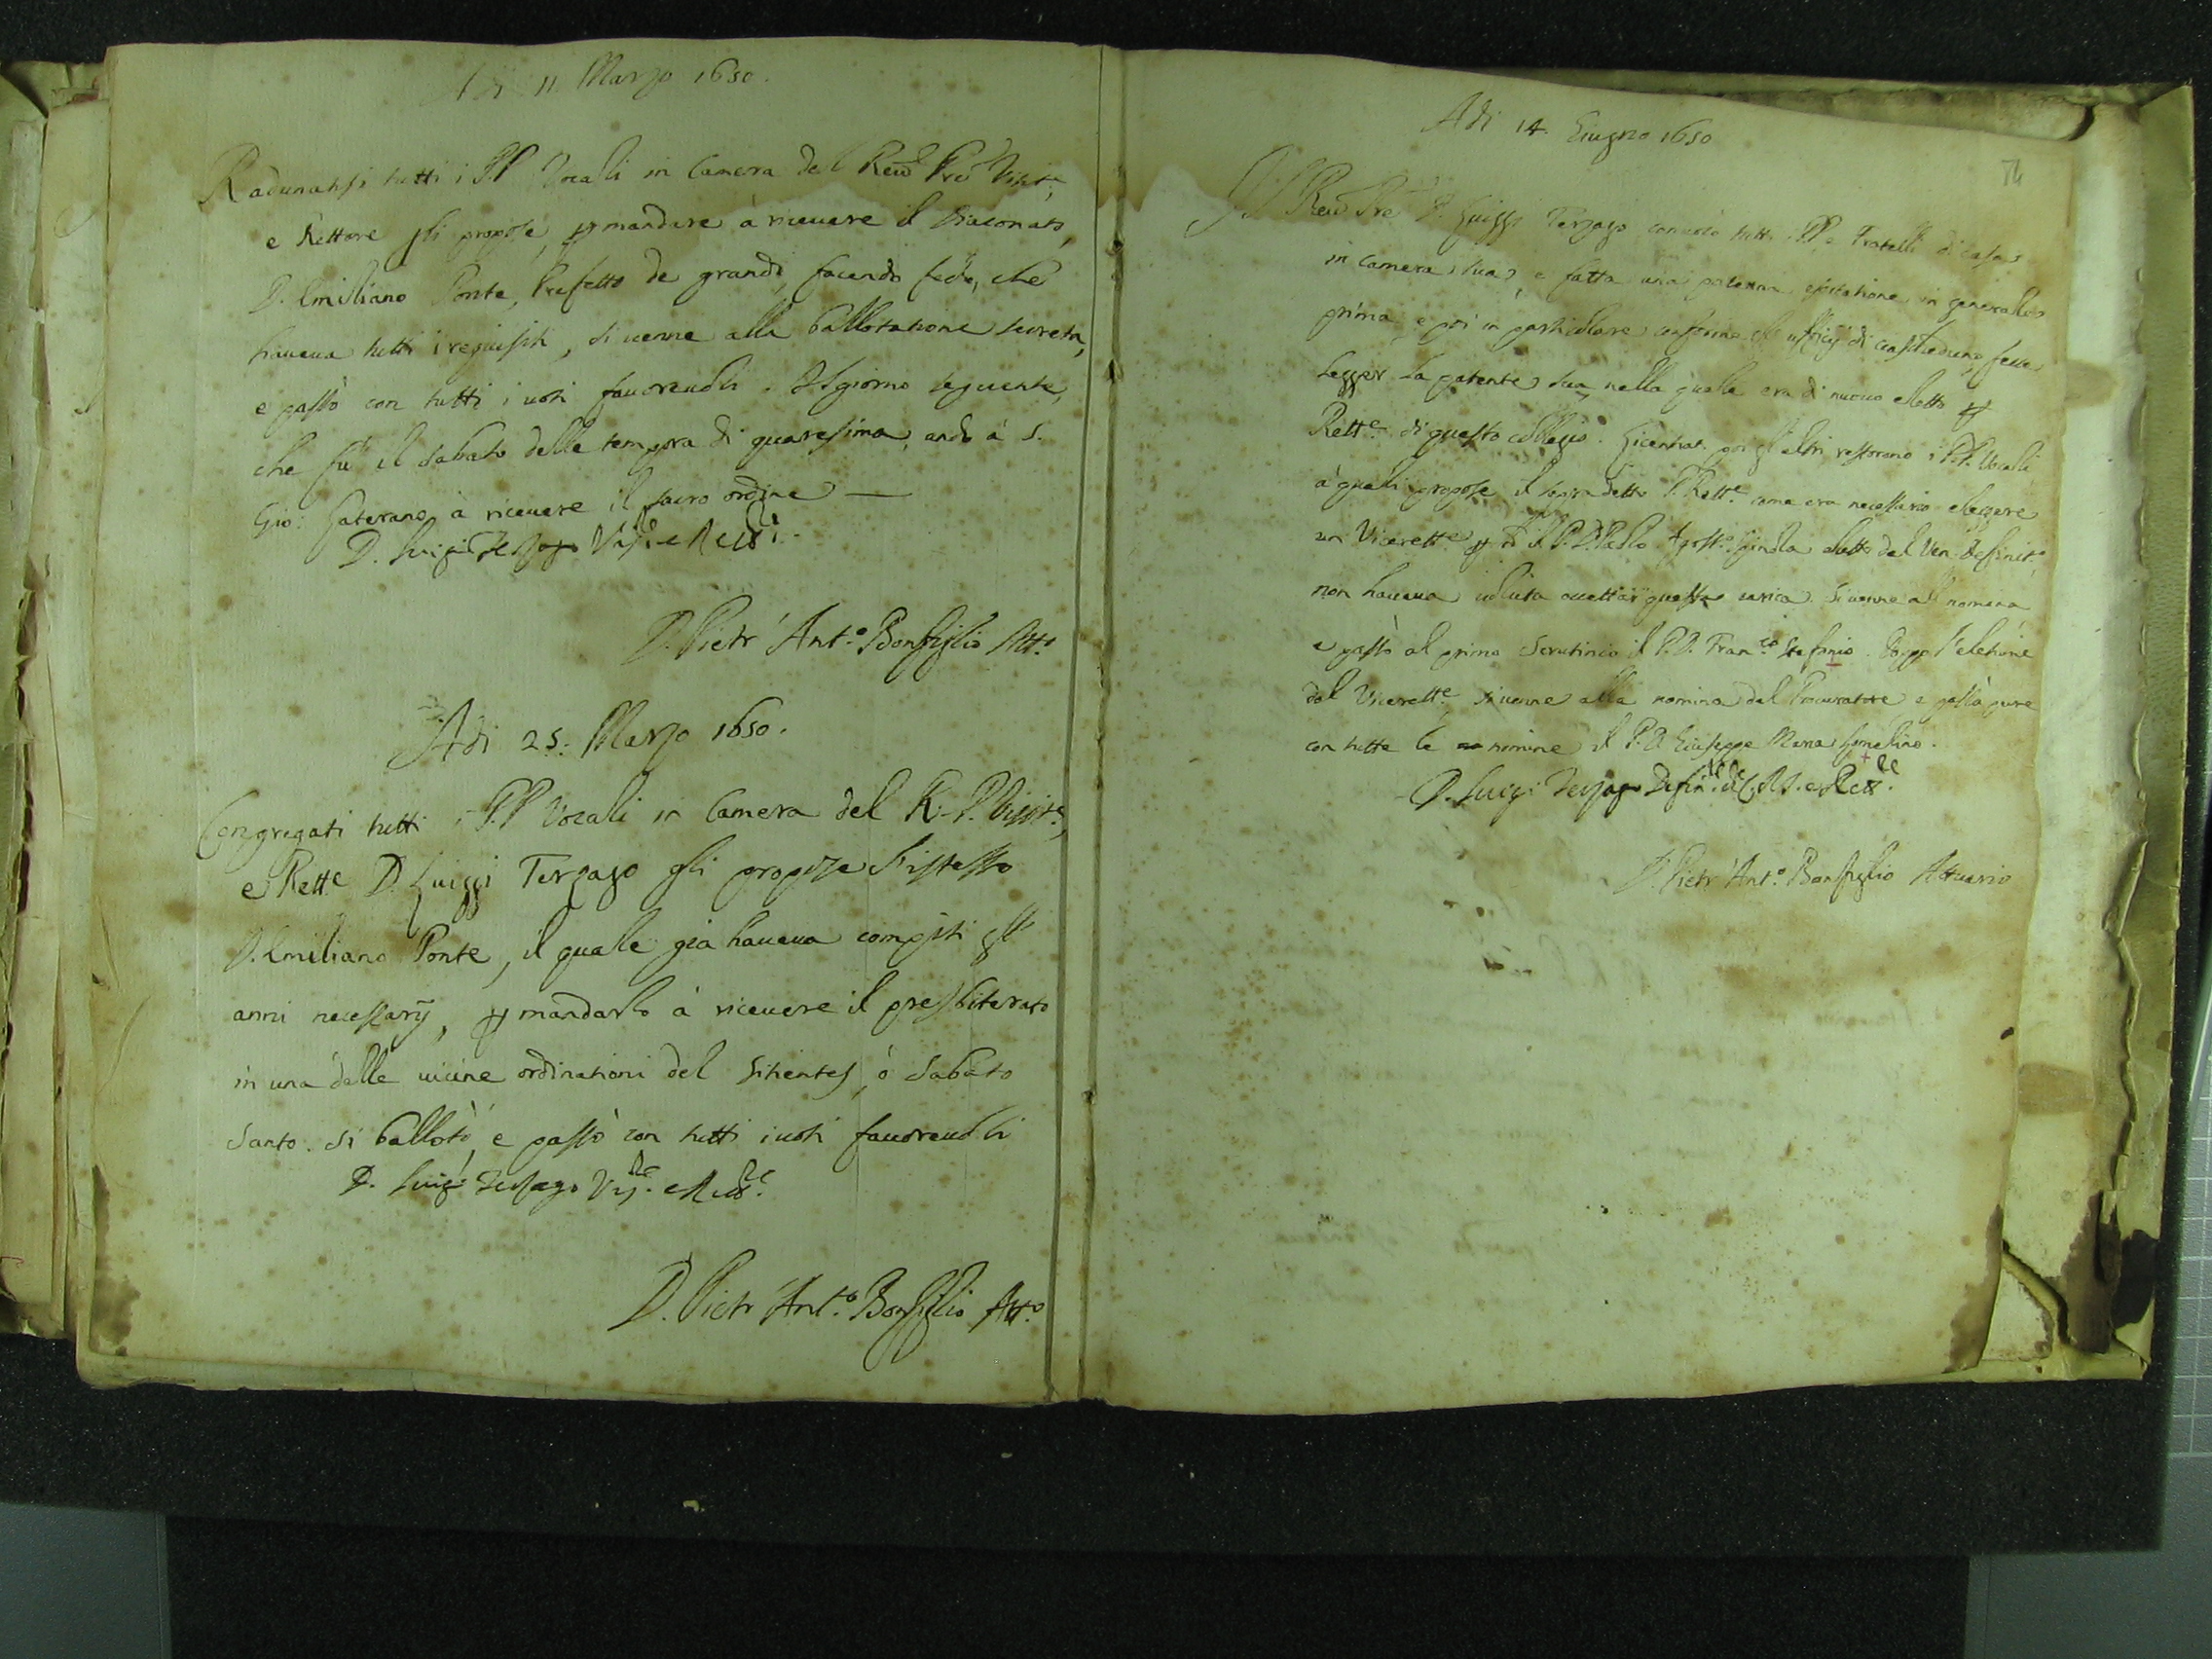 Adi 11 Marzo 1650.
Radunatisi tutti i P.P Vocali in Camera del Reu.do Pre Visit.e,
e Rettore gli propose, p mandare à riceuere il Diaconato,
D. Emiliano Ponte, Prefetto de grandi, facendo fede, che
haueua tutti i requisiti, si uenne alla ballotatione secreta,
e passò con tutti i uoti fauoreuoli. Il giorno seguente,
che fù il sabato delle tempora di quaresima, andò à S.
Gio: Laterano à riceuere il sacro ordine —
D. Luigi Terzago Vis.re e Rett.re
D. Pietr' Ant.o Bonfiglio Att.o
Adi 25. Marzo 1650.
Congregati tutti i P.P Vocali in Camera del R. P. Visit.e,
e Rett.e D. Luiggi Terzago gli propose l'istesso
D. Emiliano Ponte, il quale già haueua compiti gl'
anni necessarij, p mandarlo à riceuere il presbiterato
in una delle uicine ordinationi del Sitientes, ò Sabato
Santo. Si ballotò, e passò con tutti i uoti fauoreuoli
D. Luigi Terzago Vis.re e Rett.re
D. Pietr' Ant.o Bonfiglio Att.o
Adi 14. Giugno 1650
74
Il Reu.do Pre D. Luiggi Terzago conuocò tutti i P.P e Fratelli di casa
in camera sua, e fatta una paterna esortatione in generale
prima, e poi in particolare conforme gl' ufficij di ciascheduno, fece
legger la patente sua, nella quale era di nuouo eletto p
Rett.e di questo collegio. Licentiat. poi gl' altri, restorono i P.P. Vocali
à quali propose il sopradetto P. Rett.e come era necessario eleggere
un Vicerett.e p che il P. D. Paolo Agost.o Spinola eletto dal Ven. Definit.o
non haueua uoluto accettar questa carica. Si uenne all nomina
e passò al primo scrutinio il P. D. Fran.co Stefanio. Doppo l'eletione
del Vicerett.e, si uenne alla nomina del Procuratore e passò pure
con tutte le nomine il P. D. Giuseppe Maria Lomelino.
D. Luigi Terzago Defin.re d. C. R. S. e Rett.re
D. Pietr' Ant.o Bonfiglio Attuario